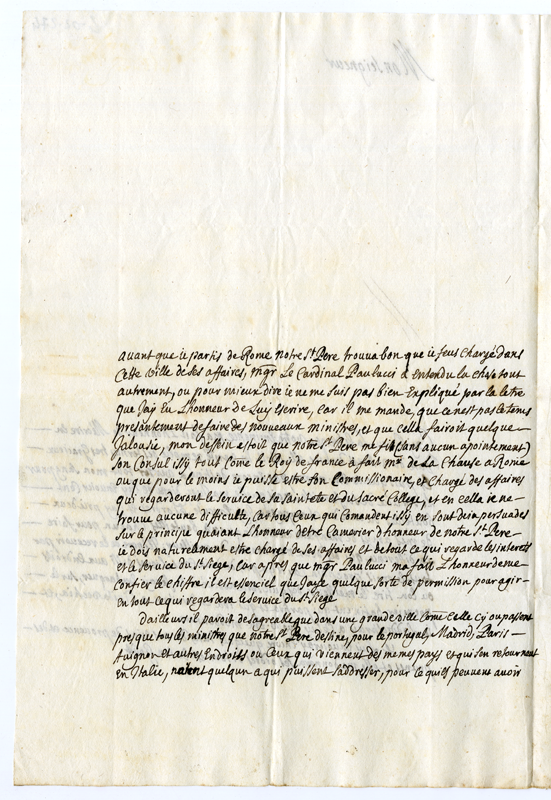 auant que ie partis de Rome notre St. Pere trouua bon que ie feus chargé dans
Cette Ville de ses affaires, mgr Le Cardinal Paulucci a Entendu la chose tout
autrement, ou pour mieux dire ie ne me suis pas bien Expliqué par la letre
que Jay Eu Lhonneur de Luy Escrire, Car il me mande, que ce nest pas le tems
presentement de faire des nouveaux ministres, et que cella fairoit quelque
Jalousie, mon dessein estoit que notre St. Pere me fit (sans aucun apointement)
son Consul issy tout Come le Roy de france a fait mr. de La Chause a Rome
ou que pour le moins ie puisse estre son Commissionaire, et Chargé des affaires
qui regarderont le service de sa sainteté et du sacré College, et en cella ie ne
trouve aucune difficulté, Car tous Ceux qui Comandent issy en sont dein persuades
sur le principe quaiant Lhonneur detre Camerier dhonneur de notre St. Pere
ie dois naturelement estre chargé de ses affaires et de tout ce qui regarde les interests
et le Service du St. Siege, Car apres que mgr Paulucci ma fait Lhonneur de me
Confier le chiffre il est essenciel que Jaye quelque sorte de permission pour agir
en tout ce qui regardera le service du St. Siege
Dailleurs il paroit desagreable que dans une grande ville Come Celle cy ou passent
presque tous les ministres que notre St. Pere destine, pour le portugal, Madrid, Paris
Auignon et autres Endroits ou Ceux qui viennent des memes pays et qui s'en retournent
en Italie, naient quelqun a qui puissent saddresser, pour ce quils peuvent avoir